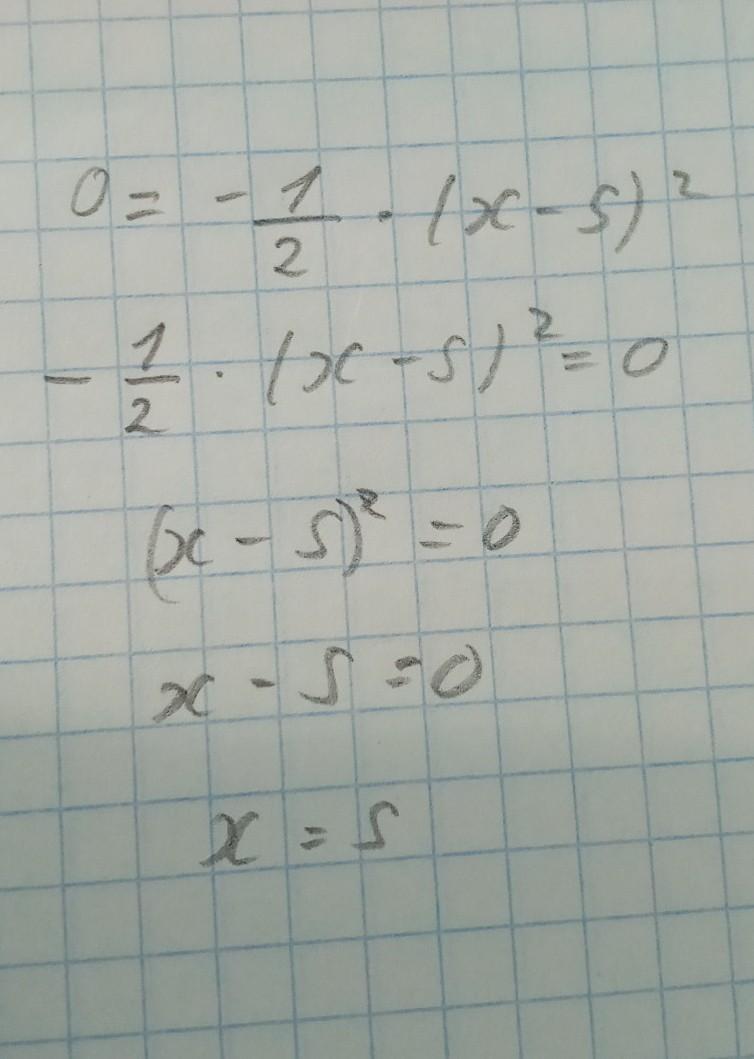 0 = - 1/2 · (x - 5)²
- 1/2 · (x - 5)² = 0
(x - 5)² = 0
x - 5 = 0
x = 5